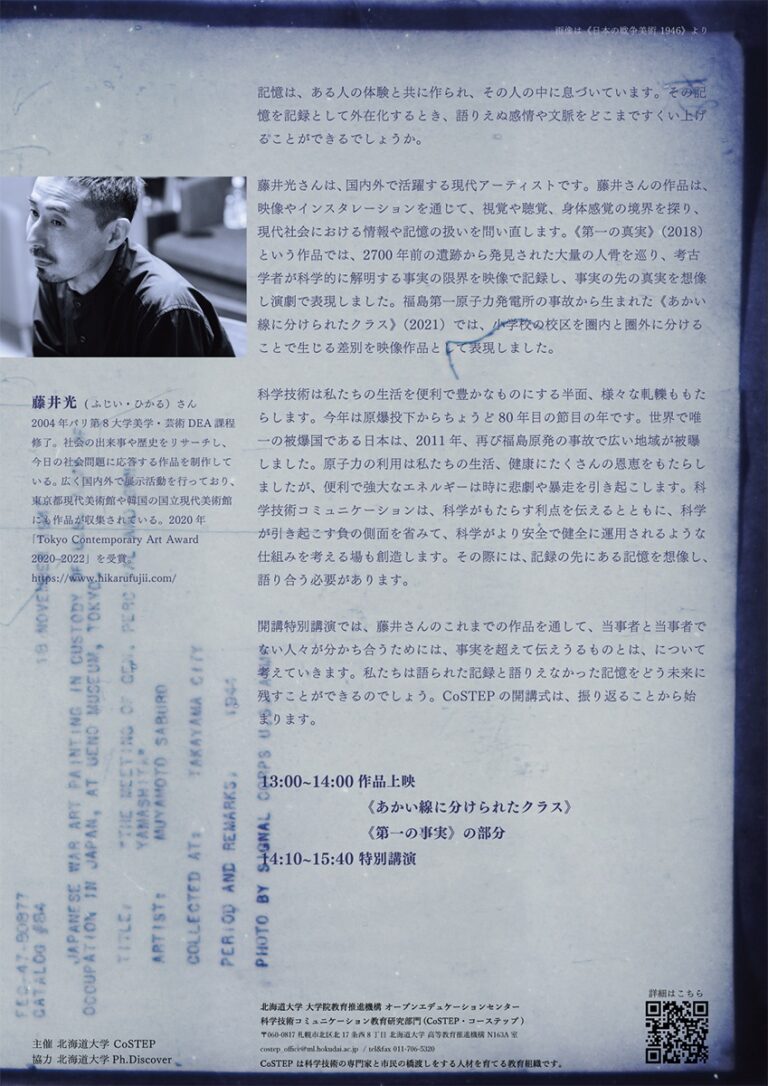 画像は《日本の戦争美術 1946》より
記憶は、ある人の体験と共に作られ、その人の中に息づいています。その記
憶を記録として外在化するとき、語りえぬ感情や文脈をどこまですくい上げ
ることができるでしょうか。
藤井光さんは、国内外で活躍する現代アーティストです。藤井さんの作品は、
映像やインスタレーションを通じて、視覚や聴覚、身体感覚の境界を探り、
現代社会における情報や記憶の扱いを問い直します。《第一の真実》（2018）
という作品では、2700 年前の遺跡から発見された大量の人骨を巡り、考古
学者が科学的に解明する事実の限界を映像で記録し、事実の先の真実を想像
し演劇で表現しました。福島第一原子力発電所の事故から生まれた《あかい
線に分けられたクラス》（2021）では、小学校の校区を圏内と圏外に分ける
ことで生じる差別を映像作品として表現しました。
科学技術は私たちの生活を便利で豊かなものにする半面、様々な軋轢ももた
らします。今年は原爆投下からちょうど 80 年目の節目の年です。世界で唯
一の被爆国である日本は、2011 年、再び福島原発の事故で広い地域が被曝
しました。原子力の利用は私たちの生活、健康にたくさんの恩恵をもたらし
ましたが、便利で強大なエネルギーは時に悲劇や暴走を引き起こします。科
学技術コミュニケーションは、科学がもたらす利点を伝えるとともに、科学
が引き起こす負の側面を省みて、科学がより安全で健全に運用されるような
仕組みを考える場も創造します。その際には、記録の先にある記憶を想像し、
語り合う必要があります。
開講特別講演では、藤井さんのこれまでの作品を通して、当事者と当事者で
ない人々が分かち合うためには、事実を超えて伝えうるものとは、について
考えていきます。私たちは語られた記録と語りえなかった記憶をどう未来に
残すことができるのでしょう。CoSTEP の開講式は、振り返ることから始
まります。
藤井光（ふじい・ひかる）さん
2004 年パリ第 8 大学美学・芸術 DEA 課程
修了。社会の出来事や歴史をリサーチし、
今日の社会問題に応答する作品を制作して
いる。広く国内外で展示活動を行っており、
東京都現代美術館や韓国の国立現代美術館
にも作品が収集されている。2020 年
「Tokyo Contemporary Art Award
2020–2022」を受賞。
https://www.hikarufujii.com/
13:00~14:00 作品上映
《あかい線に分けられたクラス》
《第一の事実》の部分
14:10~15:40 特別講演
FEC-47-80877
CATALOG #84
18 NOVEMBER
JAPANESE WAR ART PAINTING IN CUSTODY OF
OCCUPATION IN JAPAN, AT UENO MUSEUM, TOKYO
TITLE: "THE MEETING OF GEN. PERCIVAL AND GEN.
YAMASHITA"
ARTIST: MIYAMOTO SABURO
COLLECTED AT: TAKAYAMA CITY
PERIOD AND REMARKS. 1944
PHOTO BY SIGNAL CORPS U.S. ARMY
主催 北海道大学 CoSTEP
協力 北海道大学 Ph.Discover
北海道大学 大学院教育推進機構 オープンエデュケーションセンター
科学技術コミュニケーション教育研究部門 (CoSTEP・コーステップ )
〒060-0817 札幌市北区北 17 条西 8 丁目 北海道大学 高等教育推進機構 N163A 室
costep_office@ml.hokudai.ac.jp / tel&fax 011-706-5320
CoSTEP は科学技術の専門家と市民の橋渡しをする人材を育てる教育組織です。
詳細はこちら